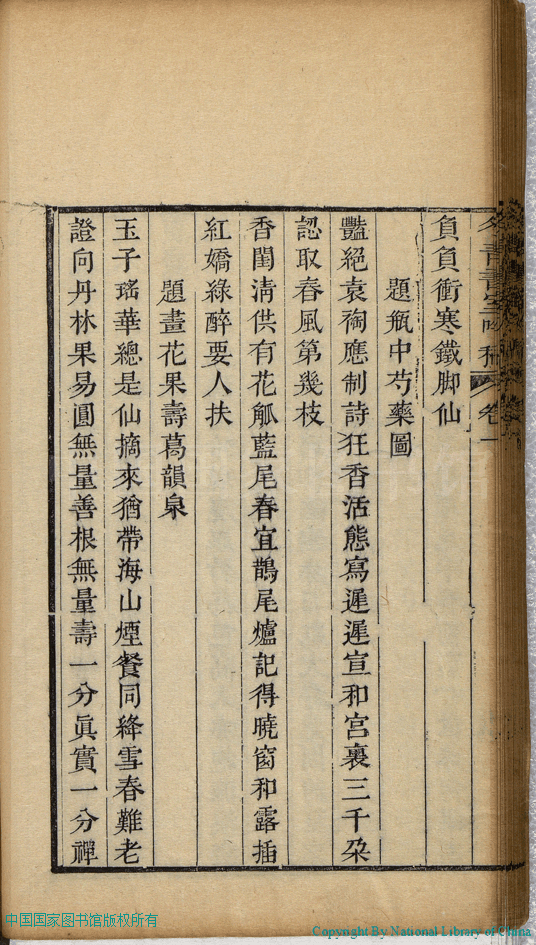 負負衝寒鐵脚仙
題瓶中芍藥圖
豔絕袁祹應制詩狂香活態寫遲遲宣和宮裏三千朶
認取春風第幾枝
香閨淸供有花觚藍尾春宜鵲尾爐記得曉窗和露插
紅嬌綠醉要人扶
題畫花果壽葛韻泉
玉子瑤華總是仙摘來猶帶海山煙餐同絳雪春難老
證向丹林果易圓無量善根無量壽一分眞實一分禪
中国国家图书馆版权所有
Copyright By National Library of China